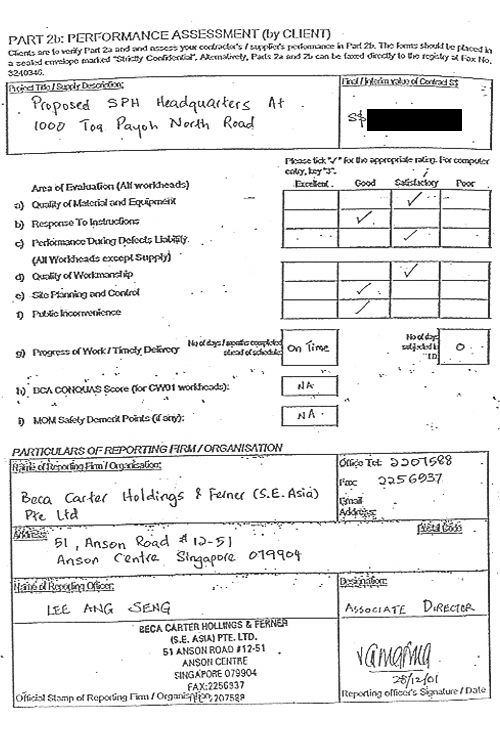 PART 2b: PERFORMANCE ASSESSMENT (by CLIENT)
Clients are to verify Part 2a and and assess your contractor's / supplier's performance in Part 2b. The forms should be placed in
a sealed envelope marked "Strictly Confidential". Alternatively, Parts 2a and 2b can be faxed directly to the registry at Fax No.
3240346.
Project Title / Supply Description:
Final / Interim value of Contract S$
Proposed SPH Headquarters At
1000 Toa Payoh North Road
S$
Please tick "✓" for the appropriate rating. For computer
entry, key "3".
Area of Evaluation (All workheads)
Excellent Good Satisfactory Poor
a) Quality of Material and Equipment ✓
b) Response To Instructions ✓
c) Performance During Defects Liability ✓
(All Workheads except Supply)
d) Quality of Workmanship ✓
e) Site Planning and Control ✓
f) Public Inconvenience ✓
g) Progress of Work / Timely Delivery
No of days / months completed
ahead of schedule
On Time
No of days
subjected to
LD.
0
h) BCA CONQUAS Score (for CW01 workheads): NA
i) MOM Safety Demerit Points (if any): NA
PARTICULARS OF REPORTING FIRM / ORGANISATION
Name of Reporting Firm / Organisation:
Beca Carter Holdings & Ferner (S.E. Asia)
Pte Ltd
Office Tel: 2207588
Fax: 2256937
Email
Address:
Address:
Postal Code
51, Anson Road #12-51
Anson Centre Singapore 079904
Name of Reporting Officer:
Designation:
LEE ANG SENG
ASSOCIATE DIRECTOR
BECA CARTER HOLLINGS & FERNER
(S.E. ASIA) PTE. LTD.
51 ANSON ROAD #12-51
ANSON CENTRE
SINGAPORE 079904
FAX:2256937
28/12/01
Official Stamp of Reporting Firm / Organisation
207588
Reporting officer's Signature / Date